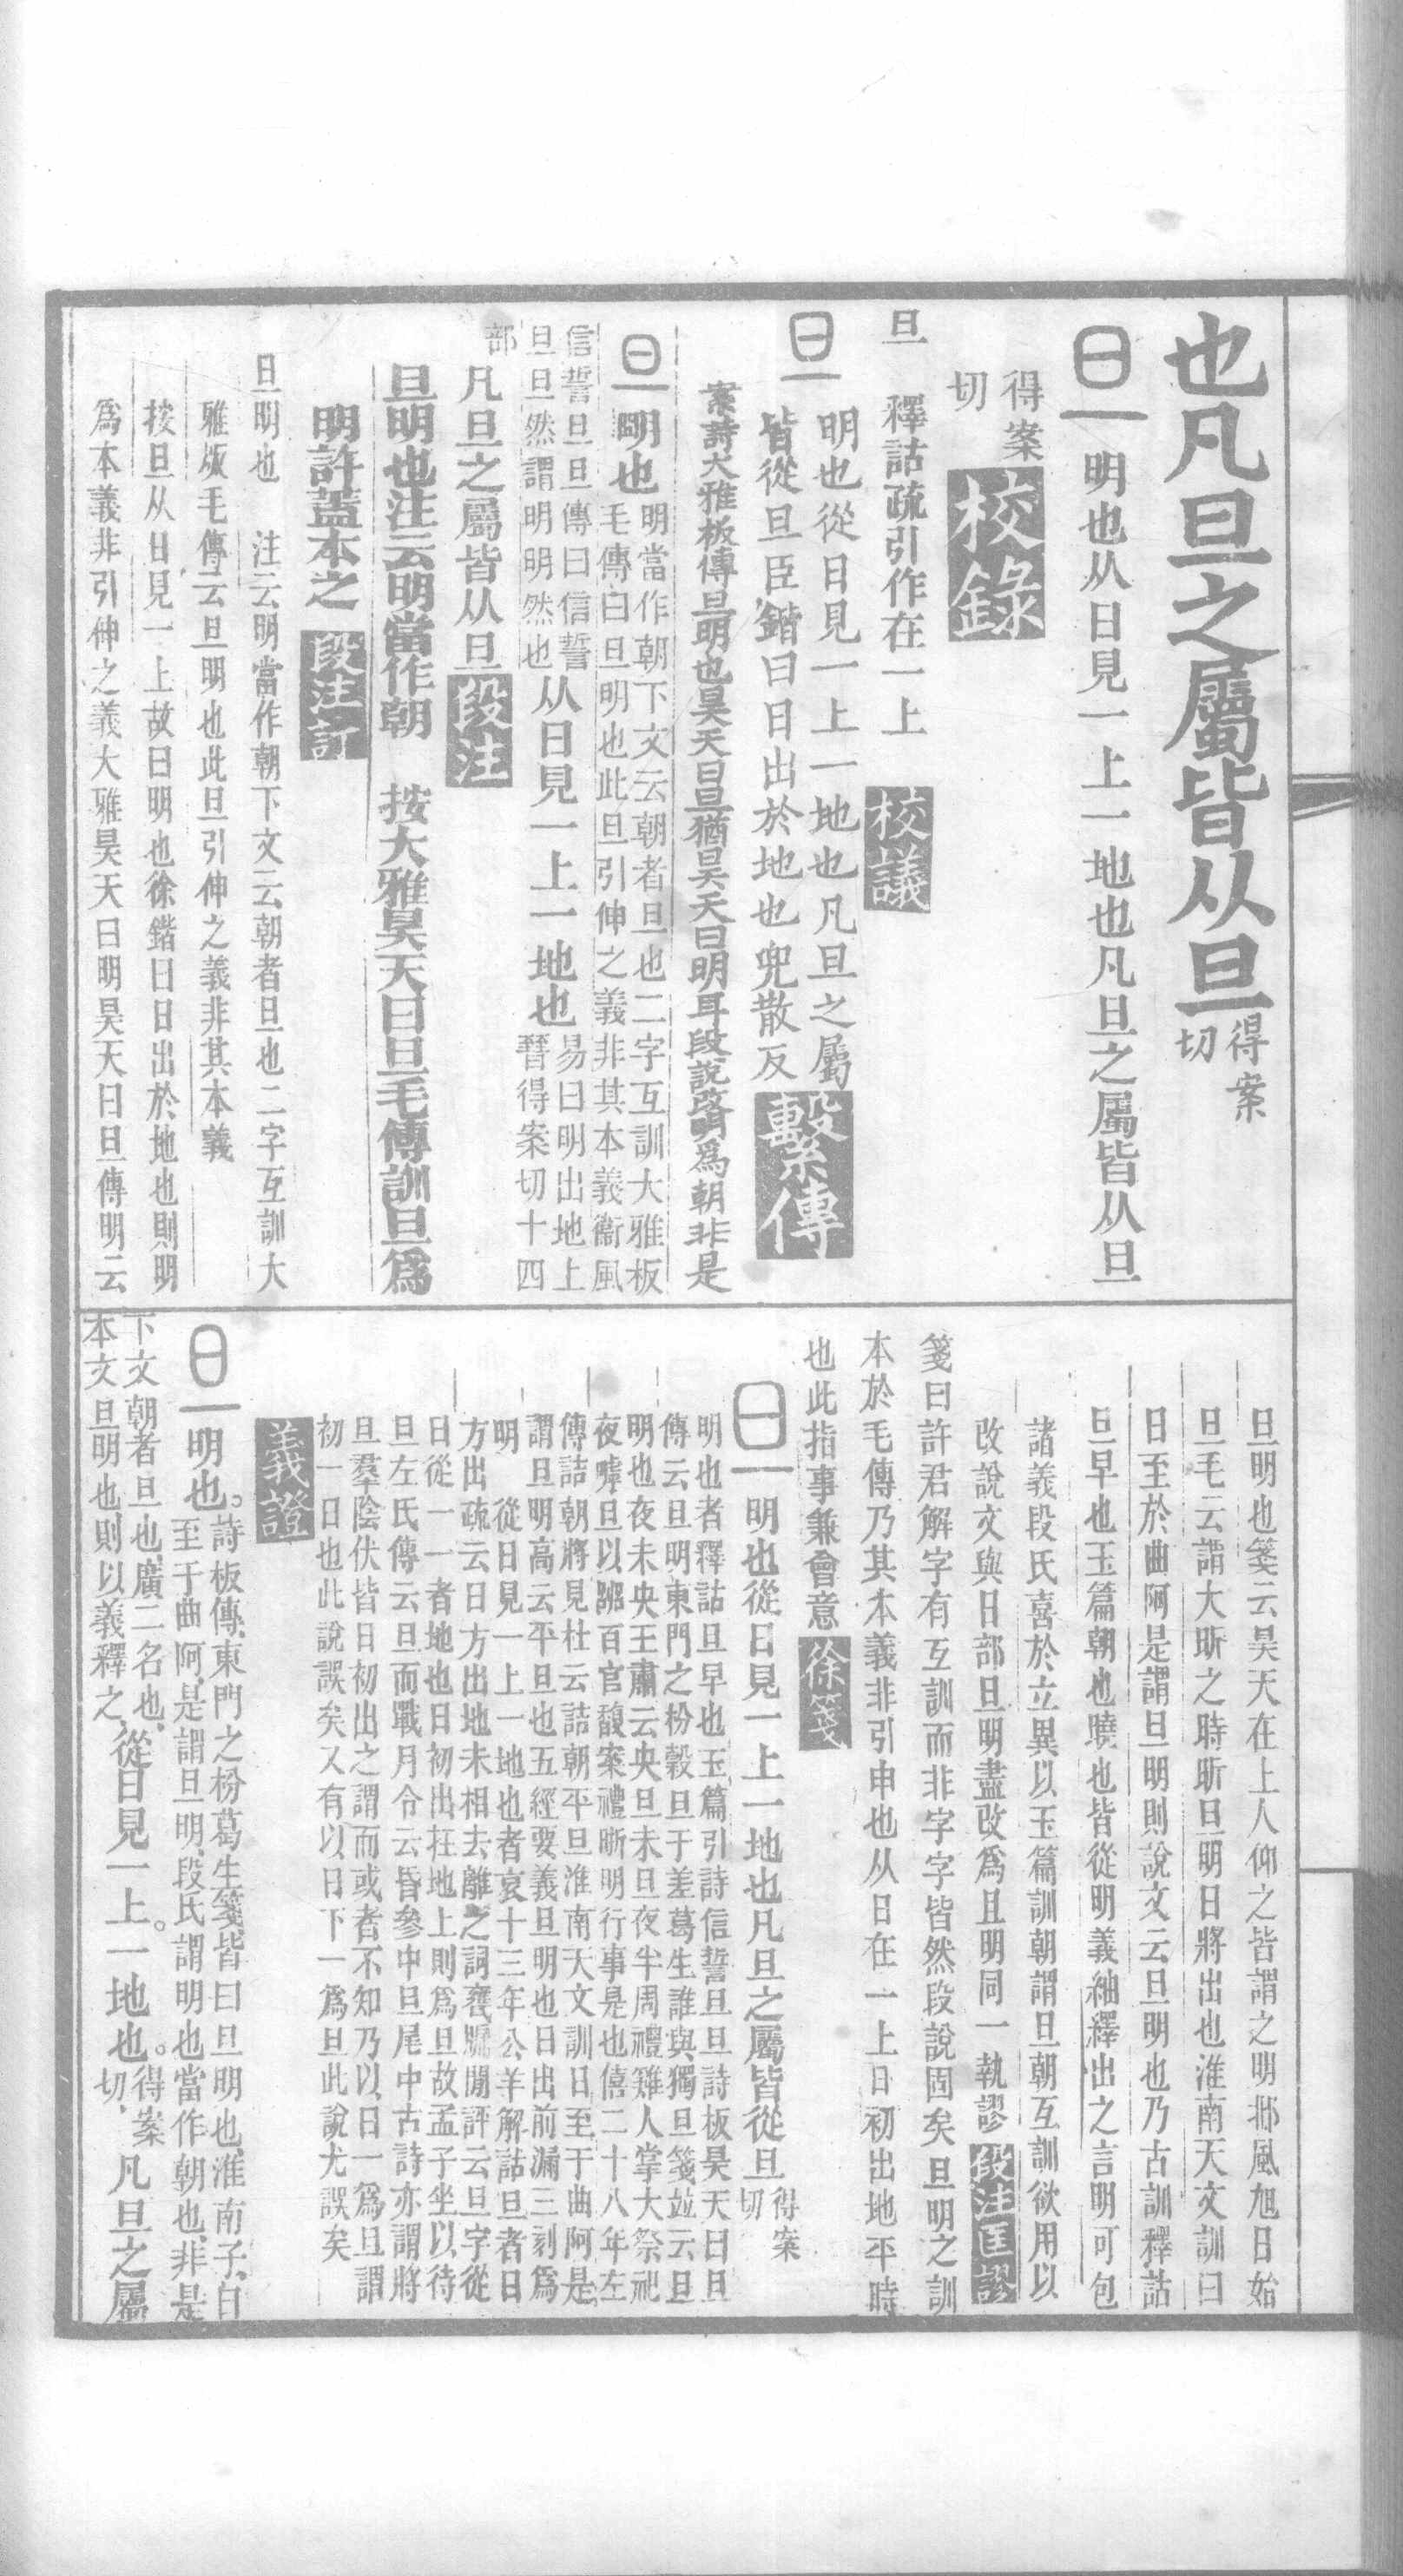 也凡旦之屬皆从旦得案切
明也从日見一上一地也凡旦之屬皆从旦
得案切 校錄
旦 釋詁疏引作在一上 校議
明也從日見一上一地也凡旦之屬
皆從旦臣鍇曰日出於地也兜散反 繫傳
案詩大雅板傳旦明也昊天曰旦猶昊天曰明耳段說改明爲朝非是
明也明當作朝下文云朝者旦也二字互訓大雅板
毛傳曰旦明也此旦引伸之義非其本義衞風
信誓旦旦傳曰信誓
旦旦然謂明明然也从日見一上一地也易曰明出地上
得案切十四
部凡旦之屬皆从旦 段注
旦明也注云明當作朝 按大雅昊天曰旦毛傳訓旦爲
明許蓋本之 段注訂
旦明也 注云明當作朝下文云朝者旦也二字互訓大
雅版毛傳云旦明也此旦引伸之義非其本義
按旦从日見一上故曰明也徐鍇曰日出於地也則明
爲本義非引伸之義大雅昊天曰明昊天曰旦傳明云
旦明也箋云昊天在上人仰之皆謂之明邶風旭日始
旦毛云謂大昕之時昕旦明日將出也淮南天文訓曰
日至於曲阿是謂旦明則說文云旦明也乃古訓釋詁
旦早也玉篇朝也曉也皆從明義紬繹出之言明可包
諸義段氏喜於立異以玉篇訓朝謂旦朝互訓欲用以
改說文與日部旦明盡改爲且明同一執謬 段注匡謬
箋曰許君解字有互訓而非字字皆然段說固矣旦明之訓
本於毛傳乃其本義非引申也从日在一上日初出地平時
也此指事兼會意 徐箋
明也從日見一上一地也凡旦之屬皆從旦得案切
明也者釋詁旦早也玉篇引詩信誓旦旦詩板昊天曰旦
傳云旦明東門之枌穀旦于差葛生誰與獨旦箋竝云旦
明也夜未央王肅云央旦未旦夜半周禮雞人掌大祭祀
夜嘑旦以嘂百官馥案禮昕明行事是也僖二十八年左
傳詰朝將見杜云詰朝平旦淮南天文訓日至于曲阿是
謂旦明高云平旦也五經要義旦明也日出前漏三刻爲
明 從日見一上一地也者哀十三年公羊解詁旦者日
方出疏云日方出地未相去離之詞閒評云旦字從
日從一一者地也日初出在地上則爲旦故孟子坐以待
旦左氏傳云旦而戰月令云昏參中旦尾中古詩亦謂將
旦羣陰伏皆日初出之謂而或者不知乃以日一爲旦謂
初一日也此說誤矣又有以日下一爲旦此說尤誤矣
義證
明也。詩板傳、東門之枌葛生箋、皆曰旦明也、淮南子、日
至于曲阿、是謂旦明、段氏謂明也當作朝也、非是
下文朝者旦也、廣二名也、
本文旦明也、則以義釋之、從日見一上。一地也。得案切、凡旦之屬